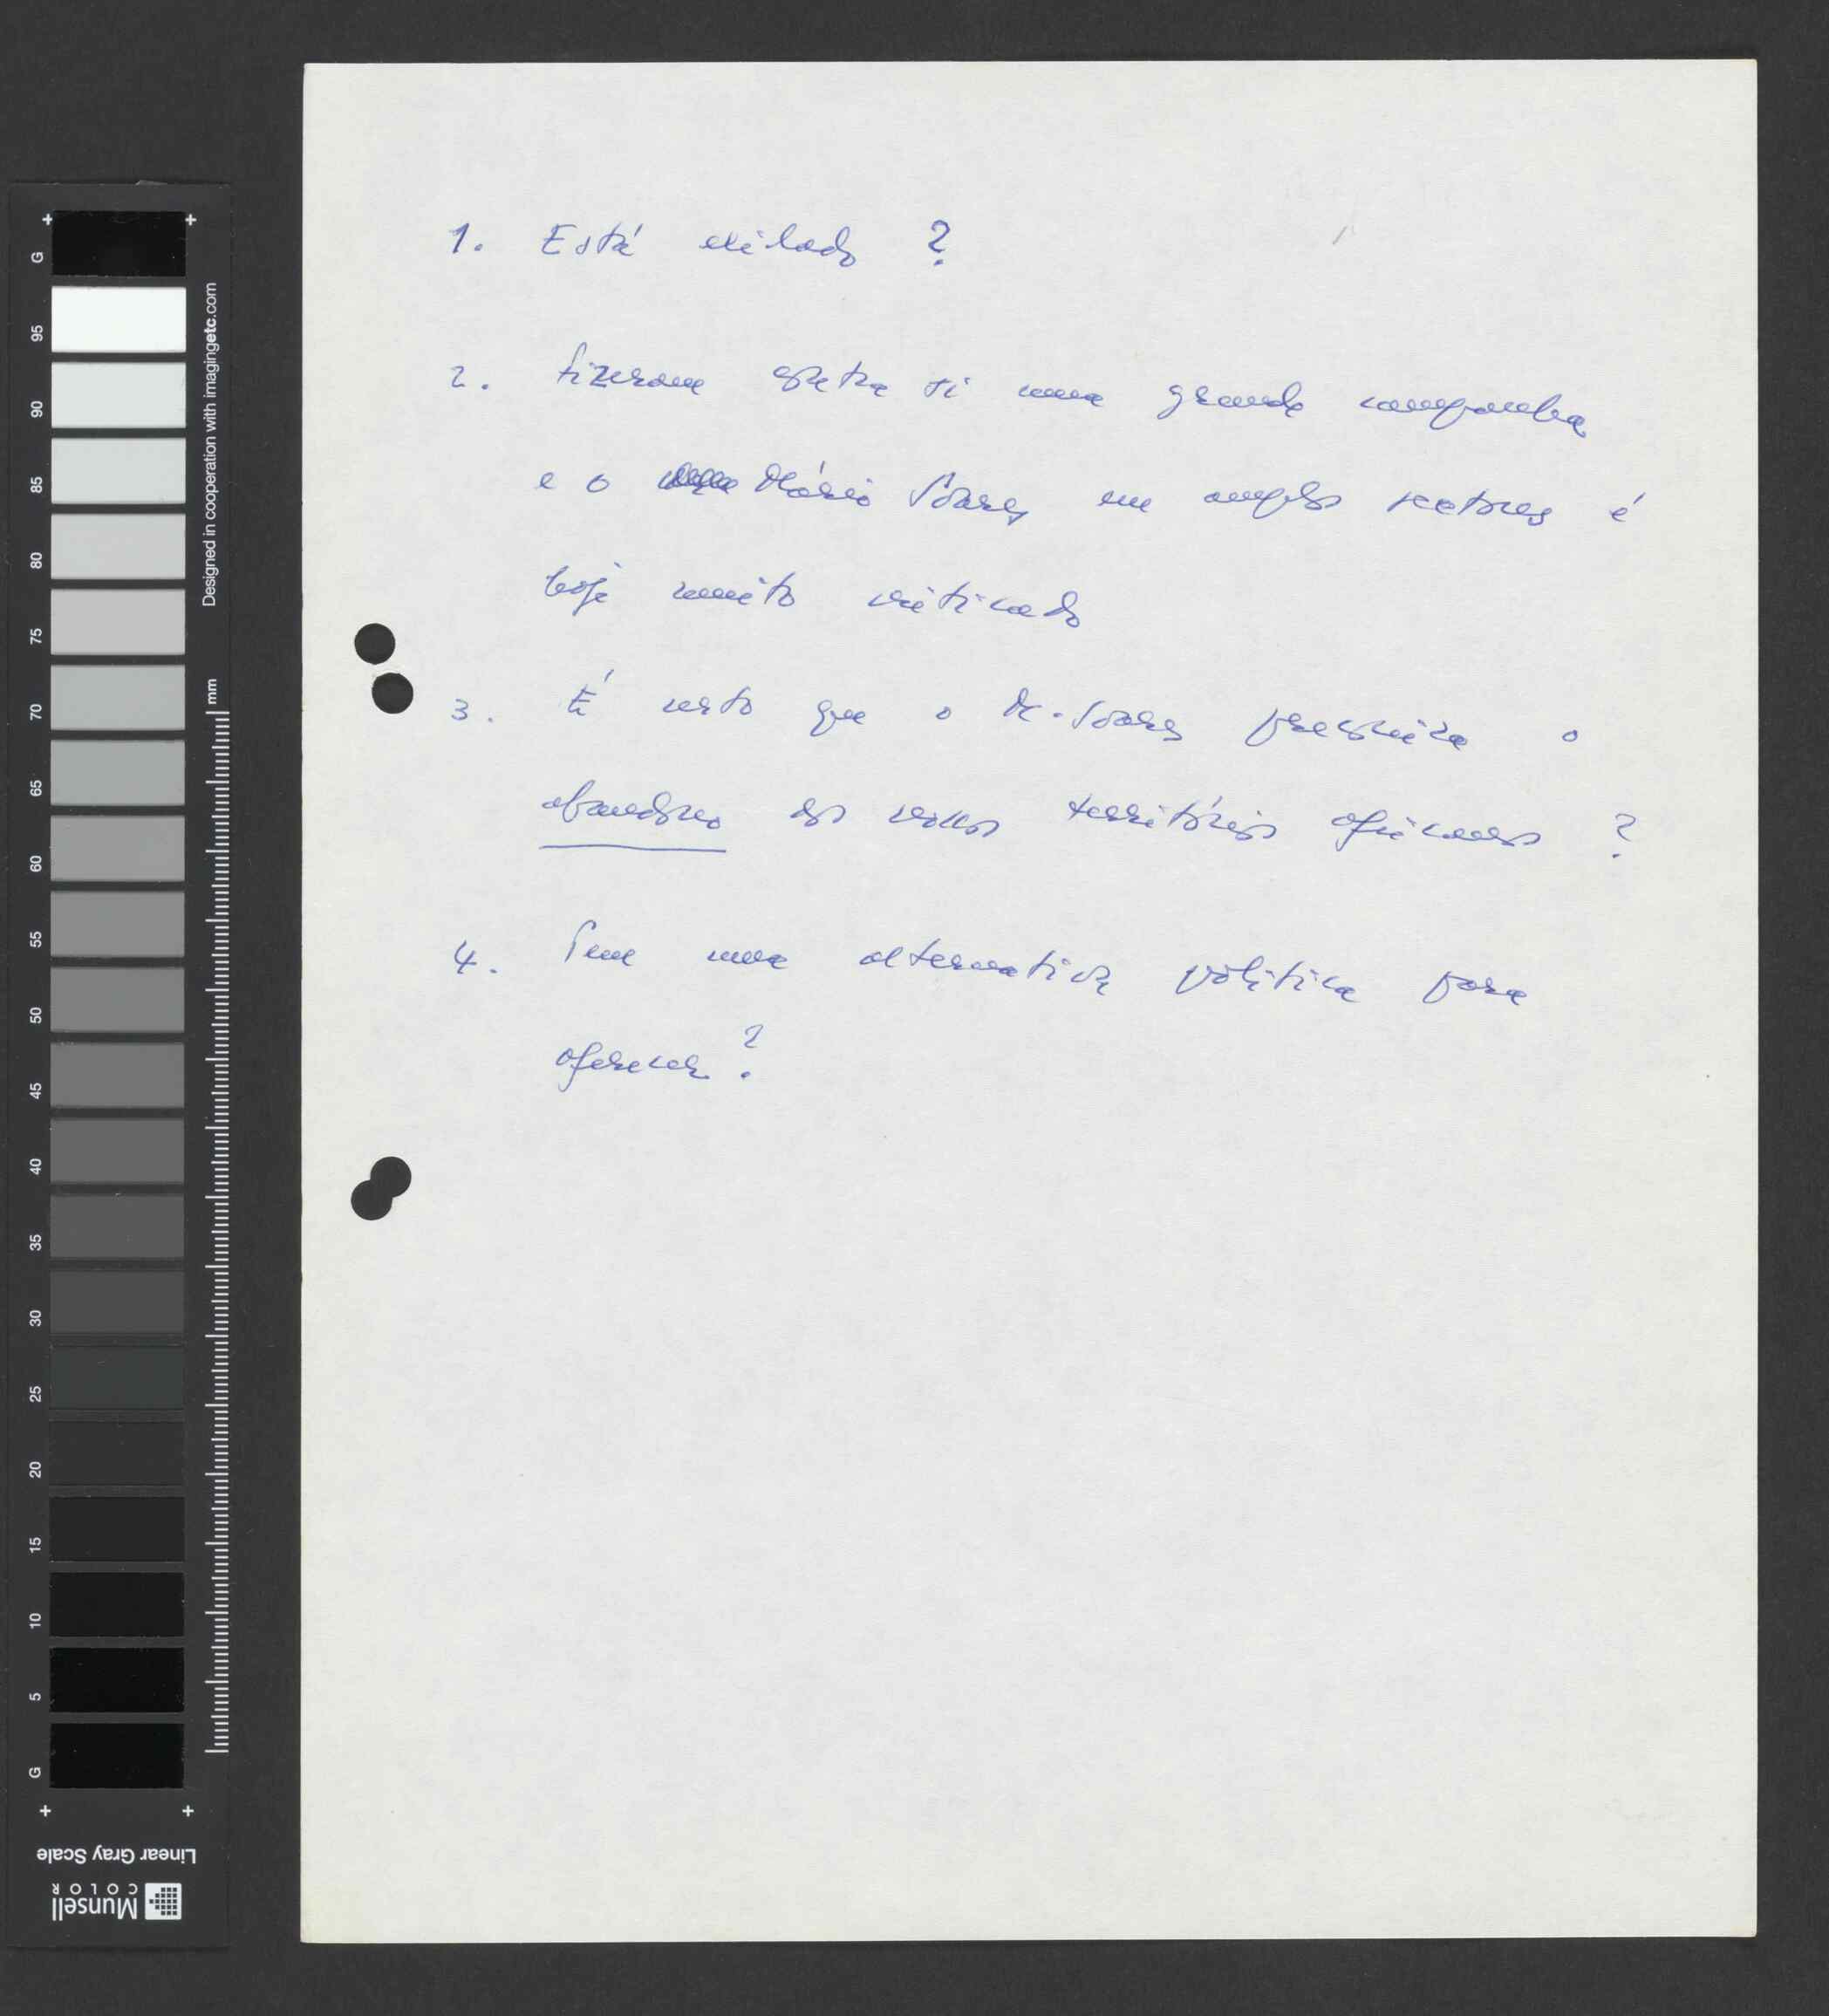 1. Está exilado ?
2. Fizeram contra si uma grande campanha
e o Mário Soares em amplos sectores é
hoje muito criticado
3. É certo que o M. Soares preconiza o
abandono dos vossos territórios africanos ?
4. Tem uma alternativa política para
oferecer ?
G 95 90 85 80 75 70 65 60 55 50 45 40 35 30 25 20 15 10 5 G
Designed in cooperation with imagingetc.com
mm
Linear Gray Scale
Munsell
COLOR